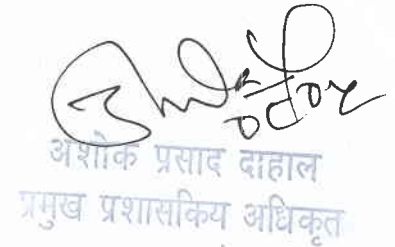 अशोक प्रसाद दाहाल
प्रमुख प्रशासकिय अधिकृत